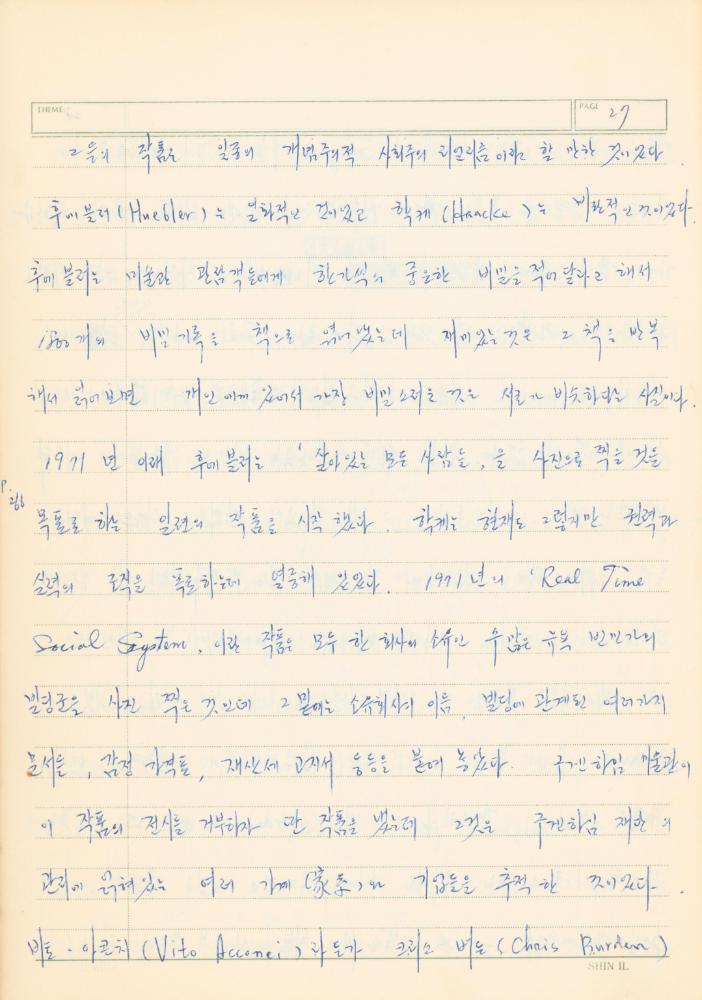 THEME
PAGE 27
그들의 작품은 일종의 개념주의적 사회주의 리얼리즘이라고 할 만한 것이었다
후에블러(Huebler)는 일화적인 것이었고 학케(Haacke)는 비판적인 것이었다.
후에블러는 미술관 관람객들에게 한가지씩의 중요한 비밀을 적어달라고 해서
1800개의 비밀기록을 책으로 엮어냈는데 재미있는 것은 그 책을 반복
해서 읽어보면 개인에게 있어서 가장 비밀스러운 것은 서로가 비슷하다는 사실이다.
1971년 이래 후에블러는 '살아있는 모든 사람들'을 사진으로 찍을 것을
목표로 하는 일련의 작품을 시작했다 학케는 현재도 그렇지만 권력과
P.
266
실력의 조직을 폭로하는데 열중해 있었다. 1971년의 'Real Time
Social System'이란 작품은 모두 한 회사의 소유인 수많은 뉴욕 빈민가의
빌딩군을 사진 찍은 것인데 그 밑에는 소유회사의 이름, 빌딩에 관계된 여러가지
문서들, 감정가격표, 재산세 고지서 등등을 붙여 놓았다. 구겐하임 미술관이
이 작품의 전시를 거부하자 딴 작품을 냈는데 그것은 구겐하임 재단의
관리에 얽혀있는 여러 가계(家系)와 기업들을 추적한 것이었다.
비토·아콘치(Vito Acconci)라든가 크리스 버든(Chris Burden)
SHIN IL